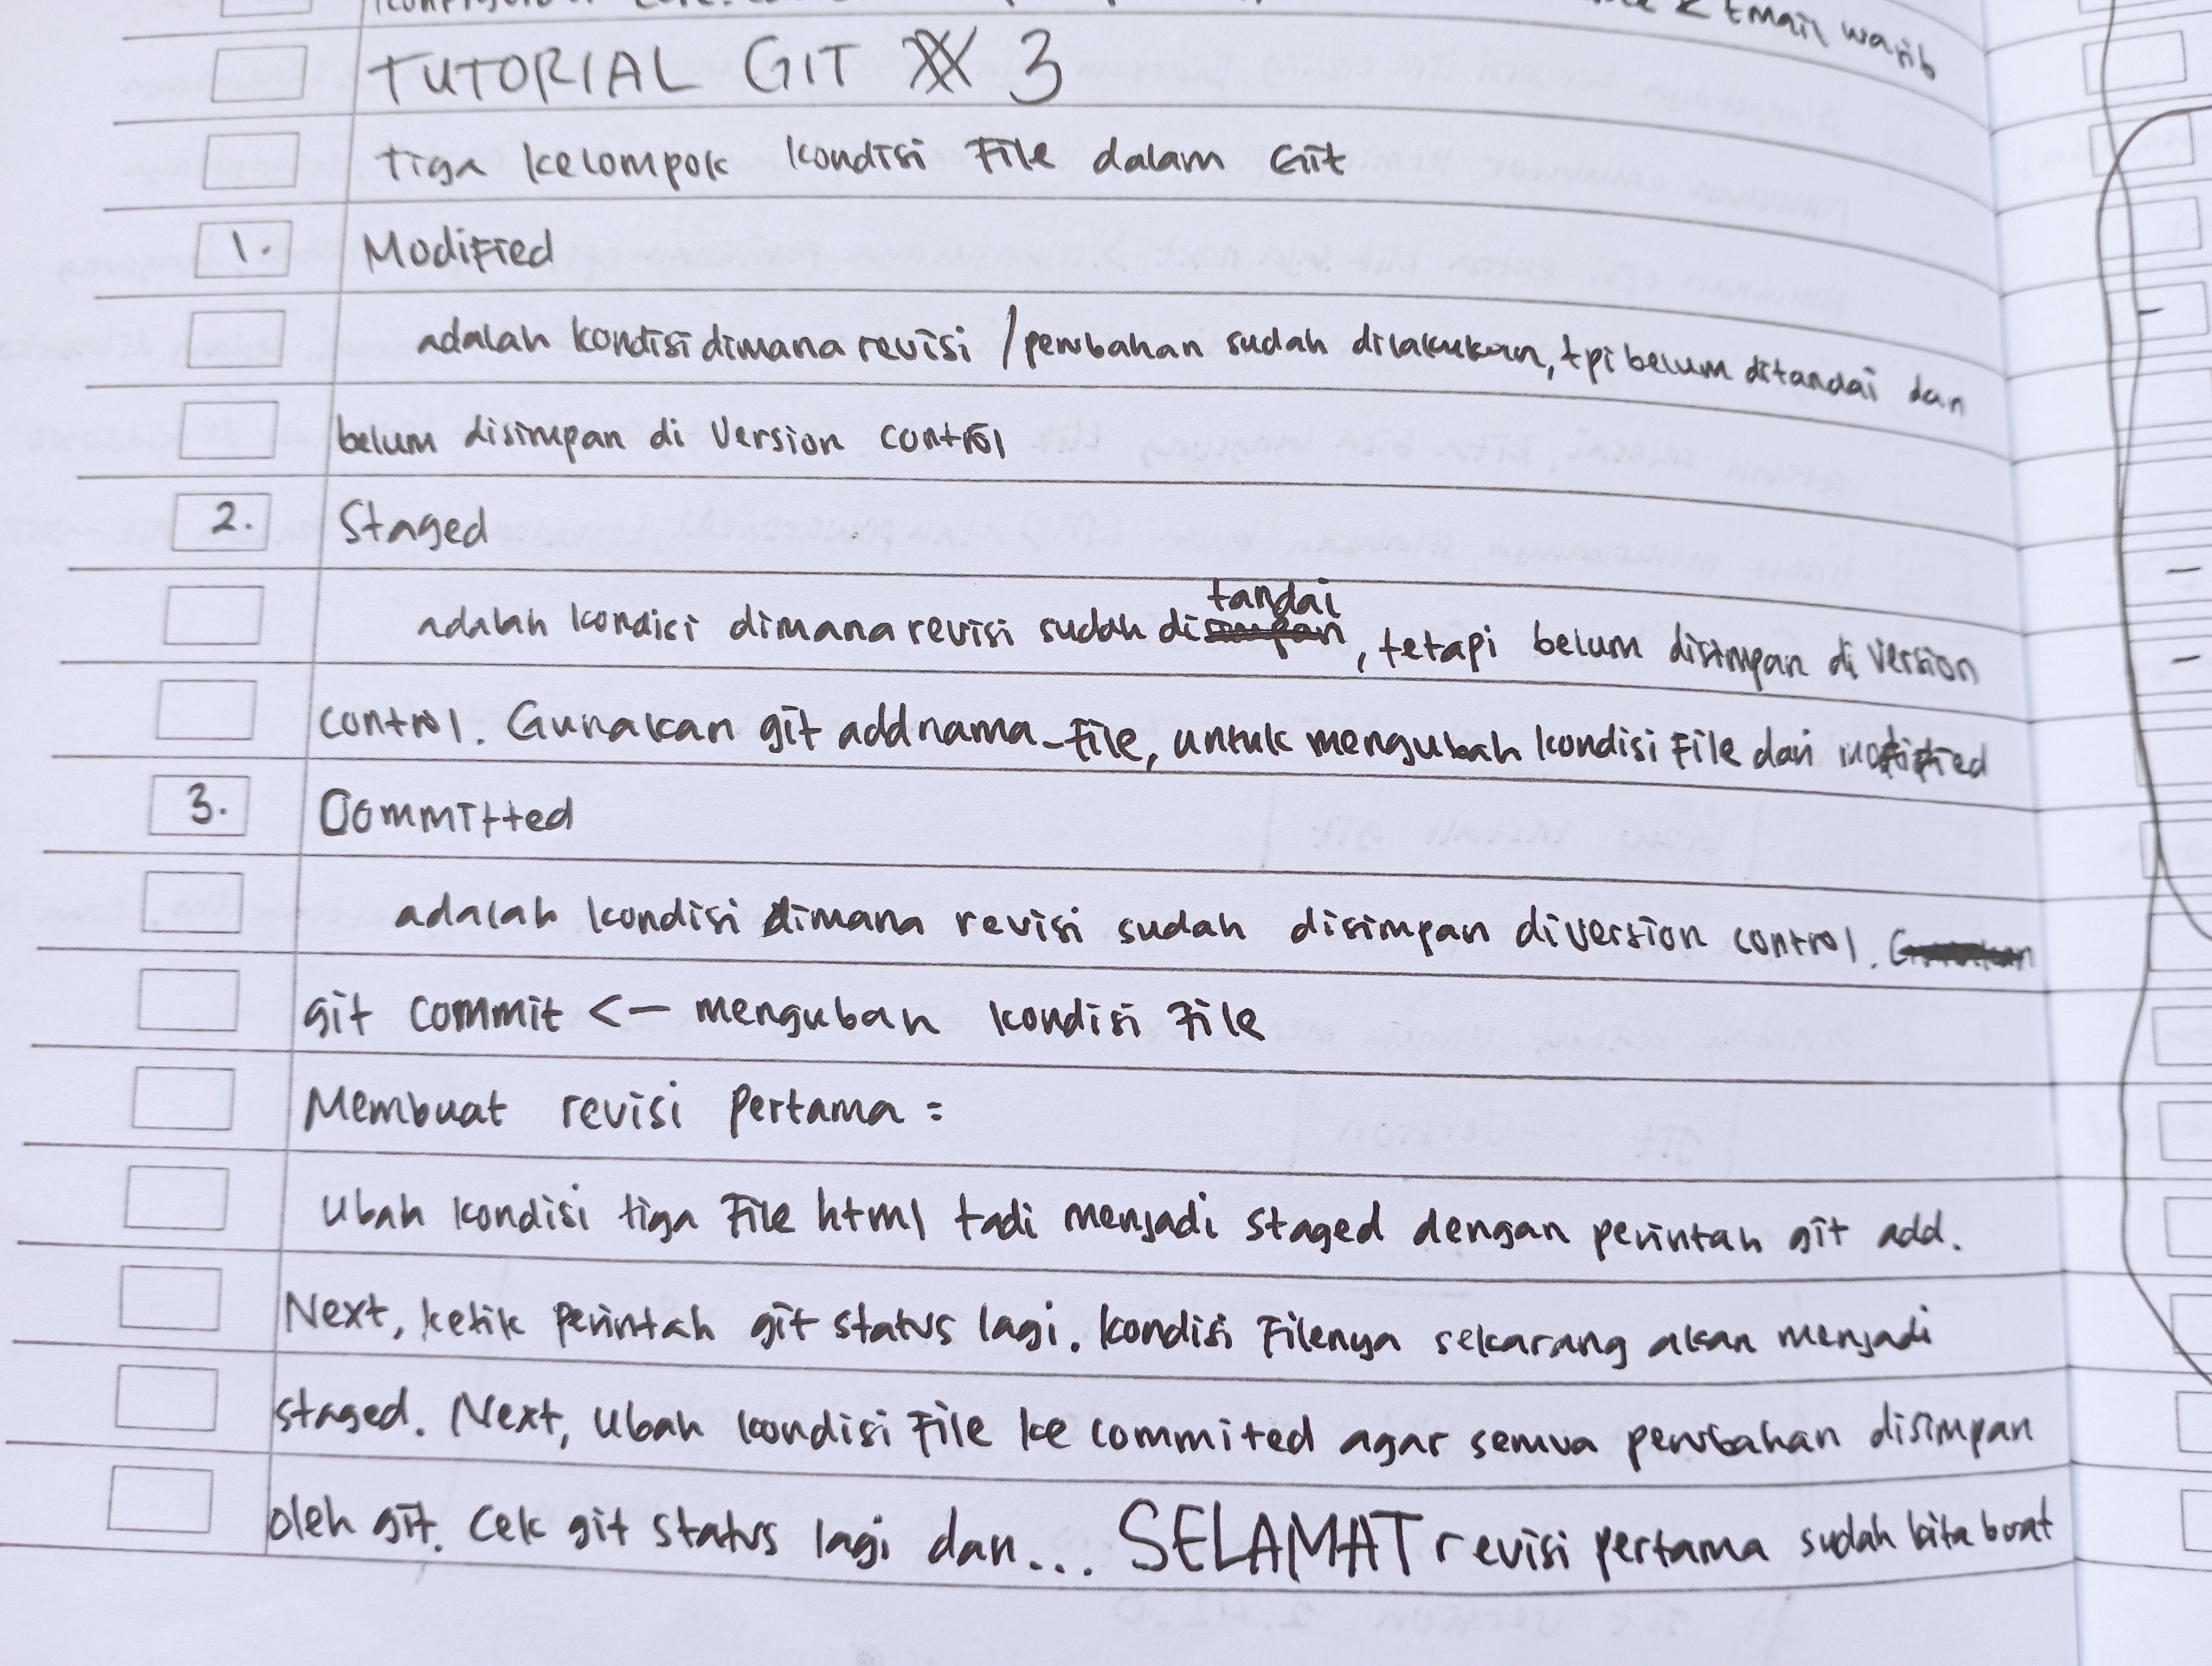 TUTORIAL GIT 3
Tiga kelompok kondisi File dalam Git
1. Modified
adalah kondisi dimana revisi / perubahan sudah dilakukan, tpi belum ditandai dan
belum disimpan di version control
2. Staged
adalah kondisi dimana revisi sudah ditandai, tetapi belum disimpan di version
control. Gunakan git add nama_file, untuk mengubah kondisi File dari modified
3. Committed
adalah kondisi dimana revisi sudah disimpan di version control.
git commit <- mengubah kondisi File
Membuat revisi pertama =
Ubah kondisi tiga File html tadi menjadi staged dengan perintah git add.
Next, ketik perintah git status lagi. kondisi Filenya sekarang akan menjadi
staged. Next, ubah kondisi File ke commited agar semua perubahan disimpan
oleh git. Cek git status lagi dan... SELAMAT revisi pertama sudah kita buat